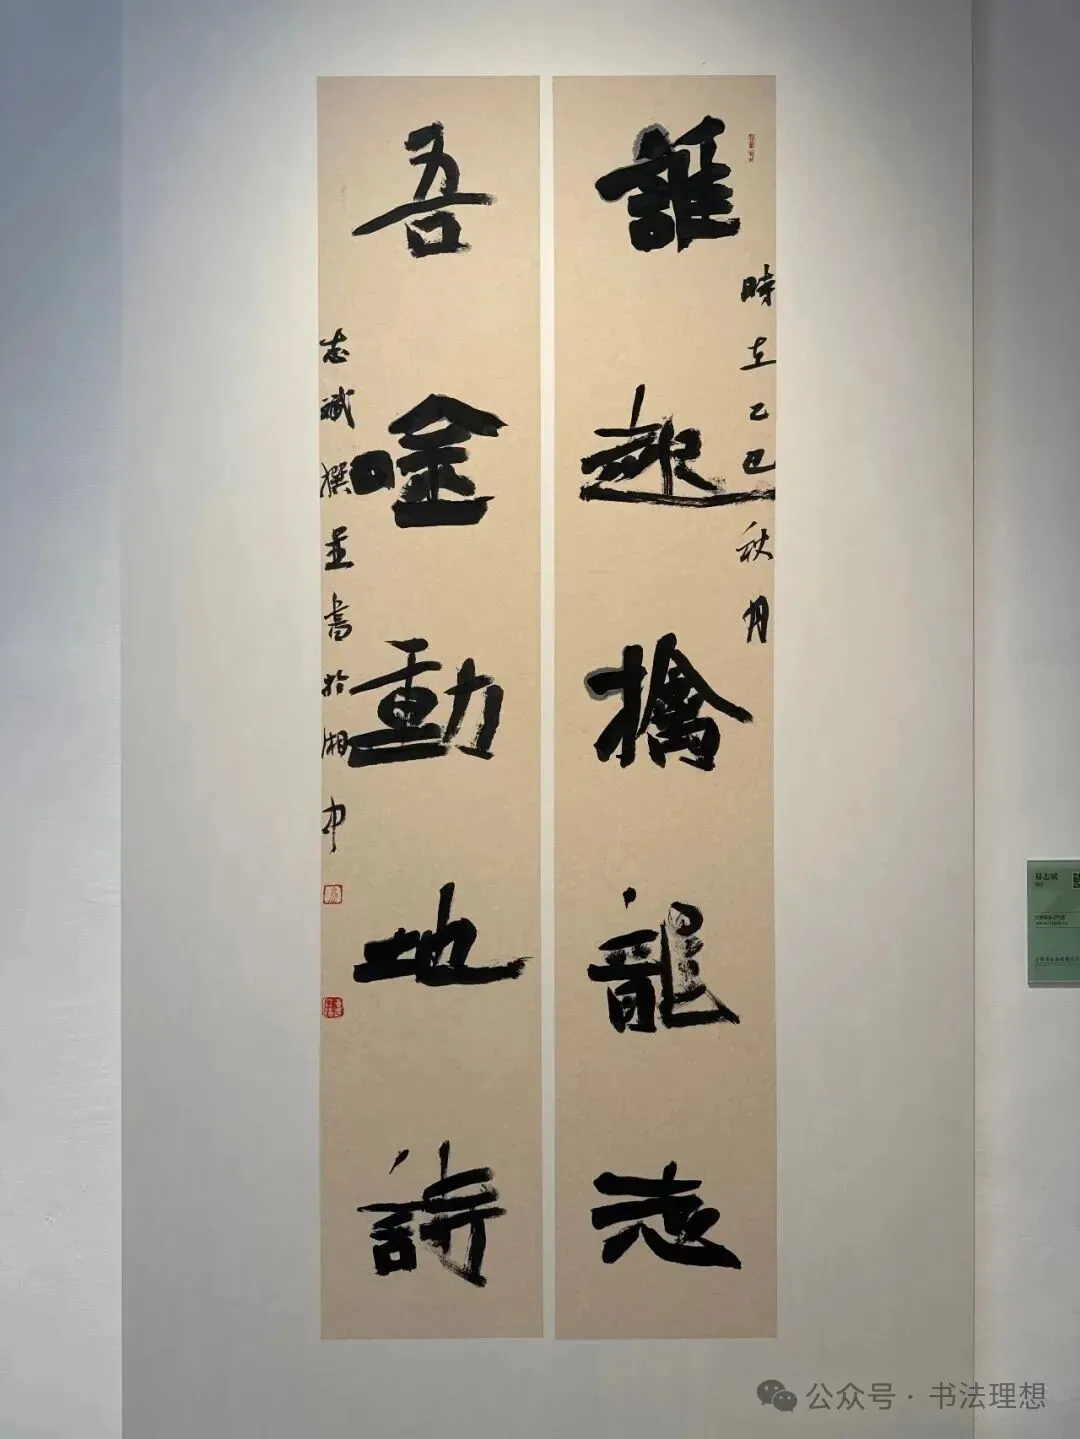 誰擒龍志
時在乙巳秋月
吾唫動地詩
志斌撰並書於湘中
公众号 · 书法理想